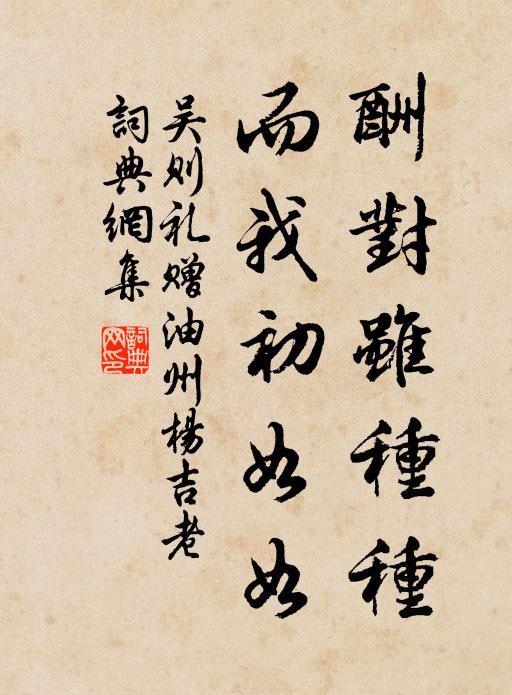 酬對雖種種
而我初如如
吴则礼赠油州楊吉老
詞典網集
詞典網印